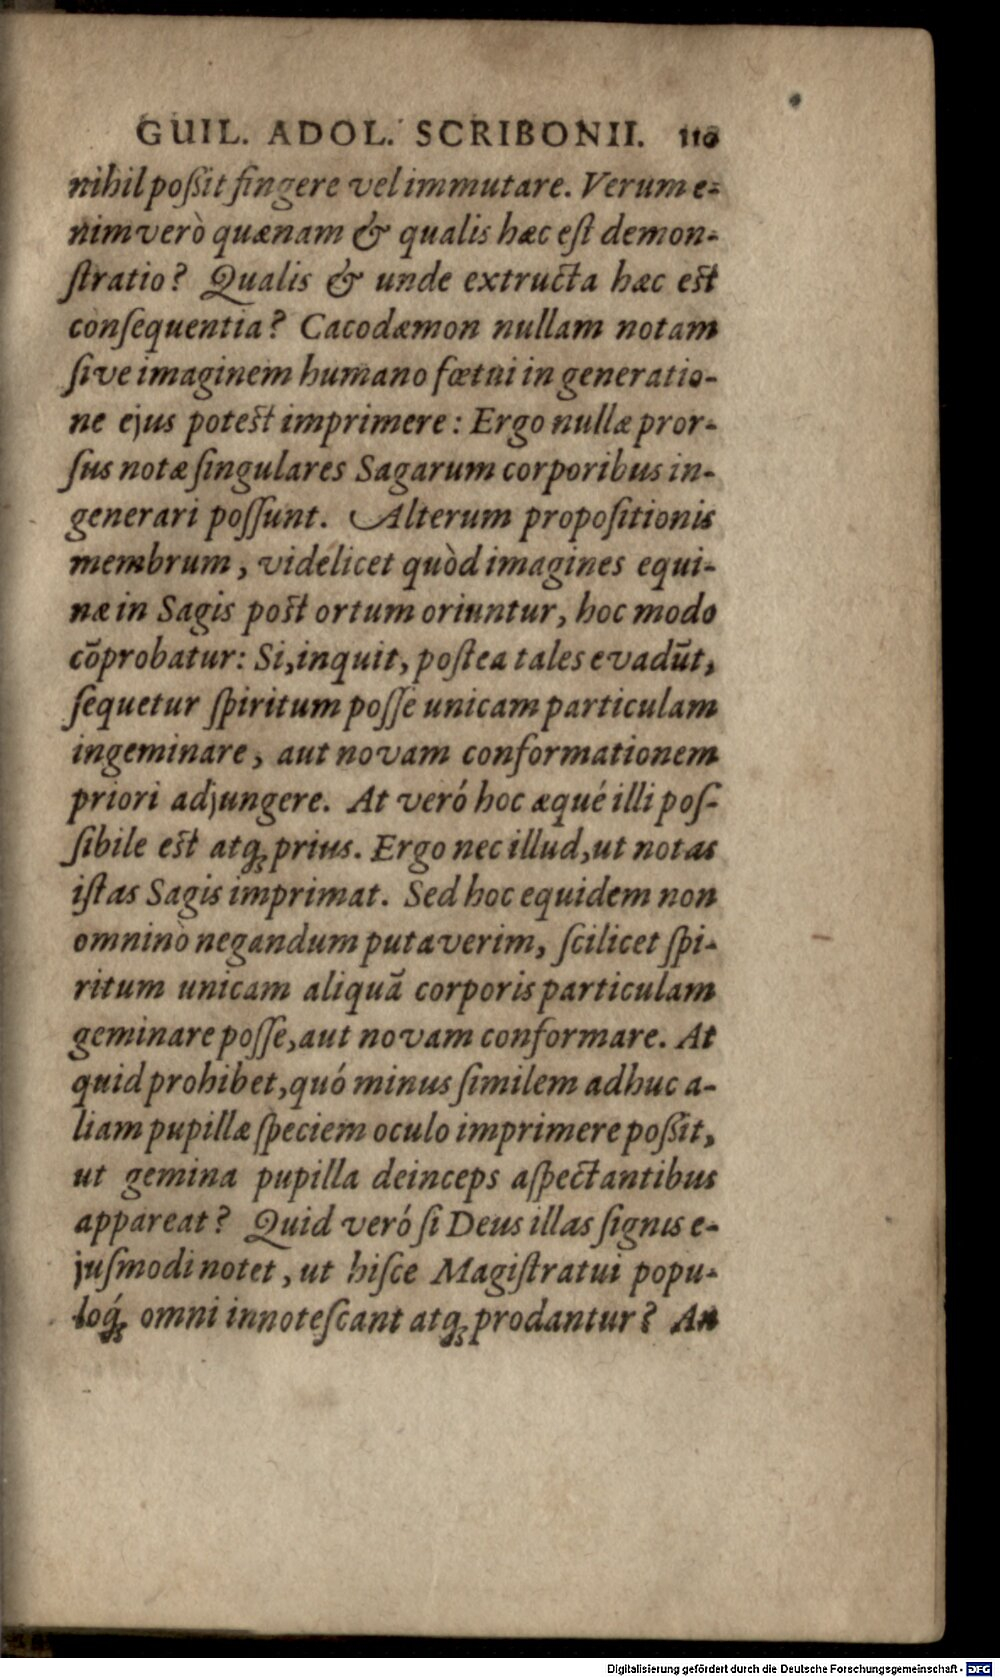 GUIL. ADOL. SCRIBONII. 110
nihil poßit fingere vel immutare. Verum e-
nimverò quænam & qualis hæc eſt demon-
ſtratio? Qualis & unde extructa hæc eſt
conſequentia? Cacodæmon nullam notam
ſive imaginem humano fœtui in generatio-
ne ejus poteſt imprimere: Ergo nullæ pror-
ſus notæ ſingulares Sagarum corporibus in-
generari poſſunt. Alterum propoſitionis
membrum, videlicet quòd imagines equi-
næ in Sagis poſt ortum oriuntur, hoc modo
cōprobatur: Si, inquit, poſtea tales evadūt,
ſequetur ſpiritum poſſe unicam particulam
ingeminare, aut novam conformationem
priori adjungere. At veró hoc æqué illi poſ-
ſibile eſt atq; prius. Ergo nec illud, ut notas
iſtas Sagis imprimat. Sed hoc equidem non
omninò negandum putaverim, ſcilicet ſpi-
ritum unicam aliquā corporis particulam
geminare poſſe, aut novam conformare. At
quid prohibet, quó minus ſimilem adhuc a-
liam pupillæ ſpeciem oculo imprimere poßit,
ut gemina pupilla deinceps aſpectantibus
appareat? Quid veró ſi Deus illas ſignis e-
juſmodi notet, ut hiſce Magiſtratui popu-
loq́; omni innoteſcant atq; prodantur? An
Digitalisierung gefördert durch die Deutsche Forschungsgemeinschaft - DFG